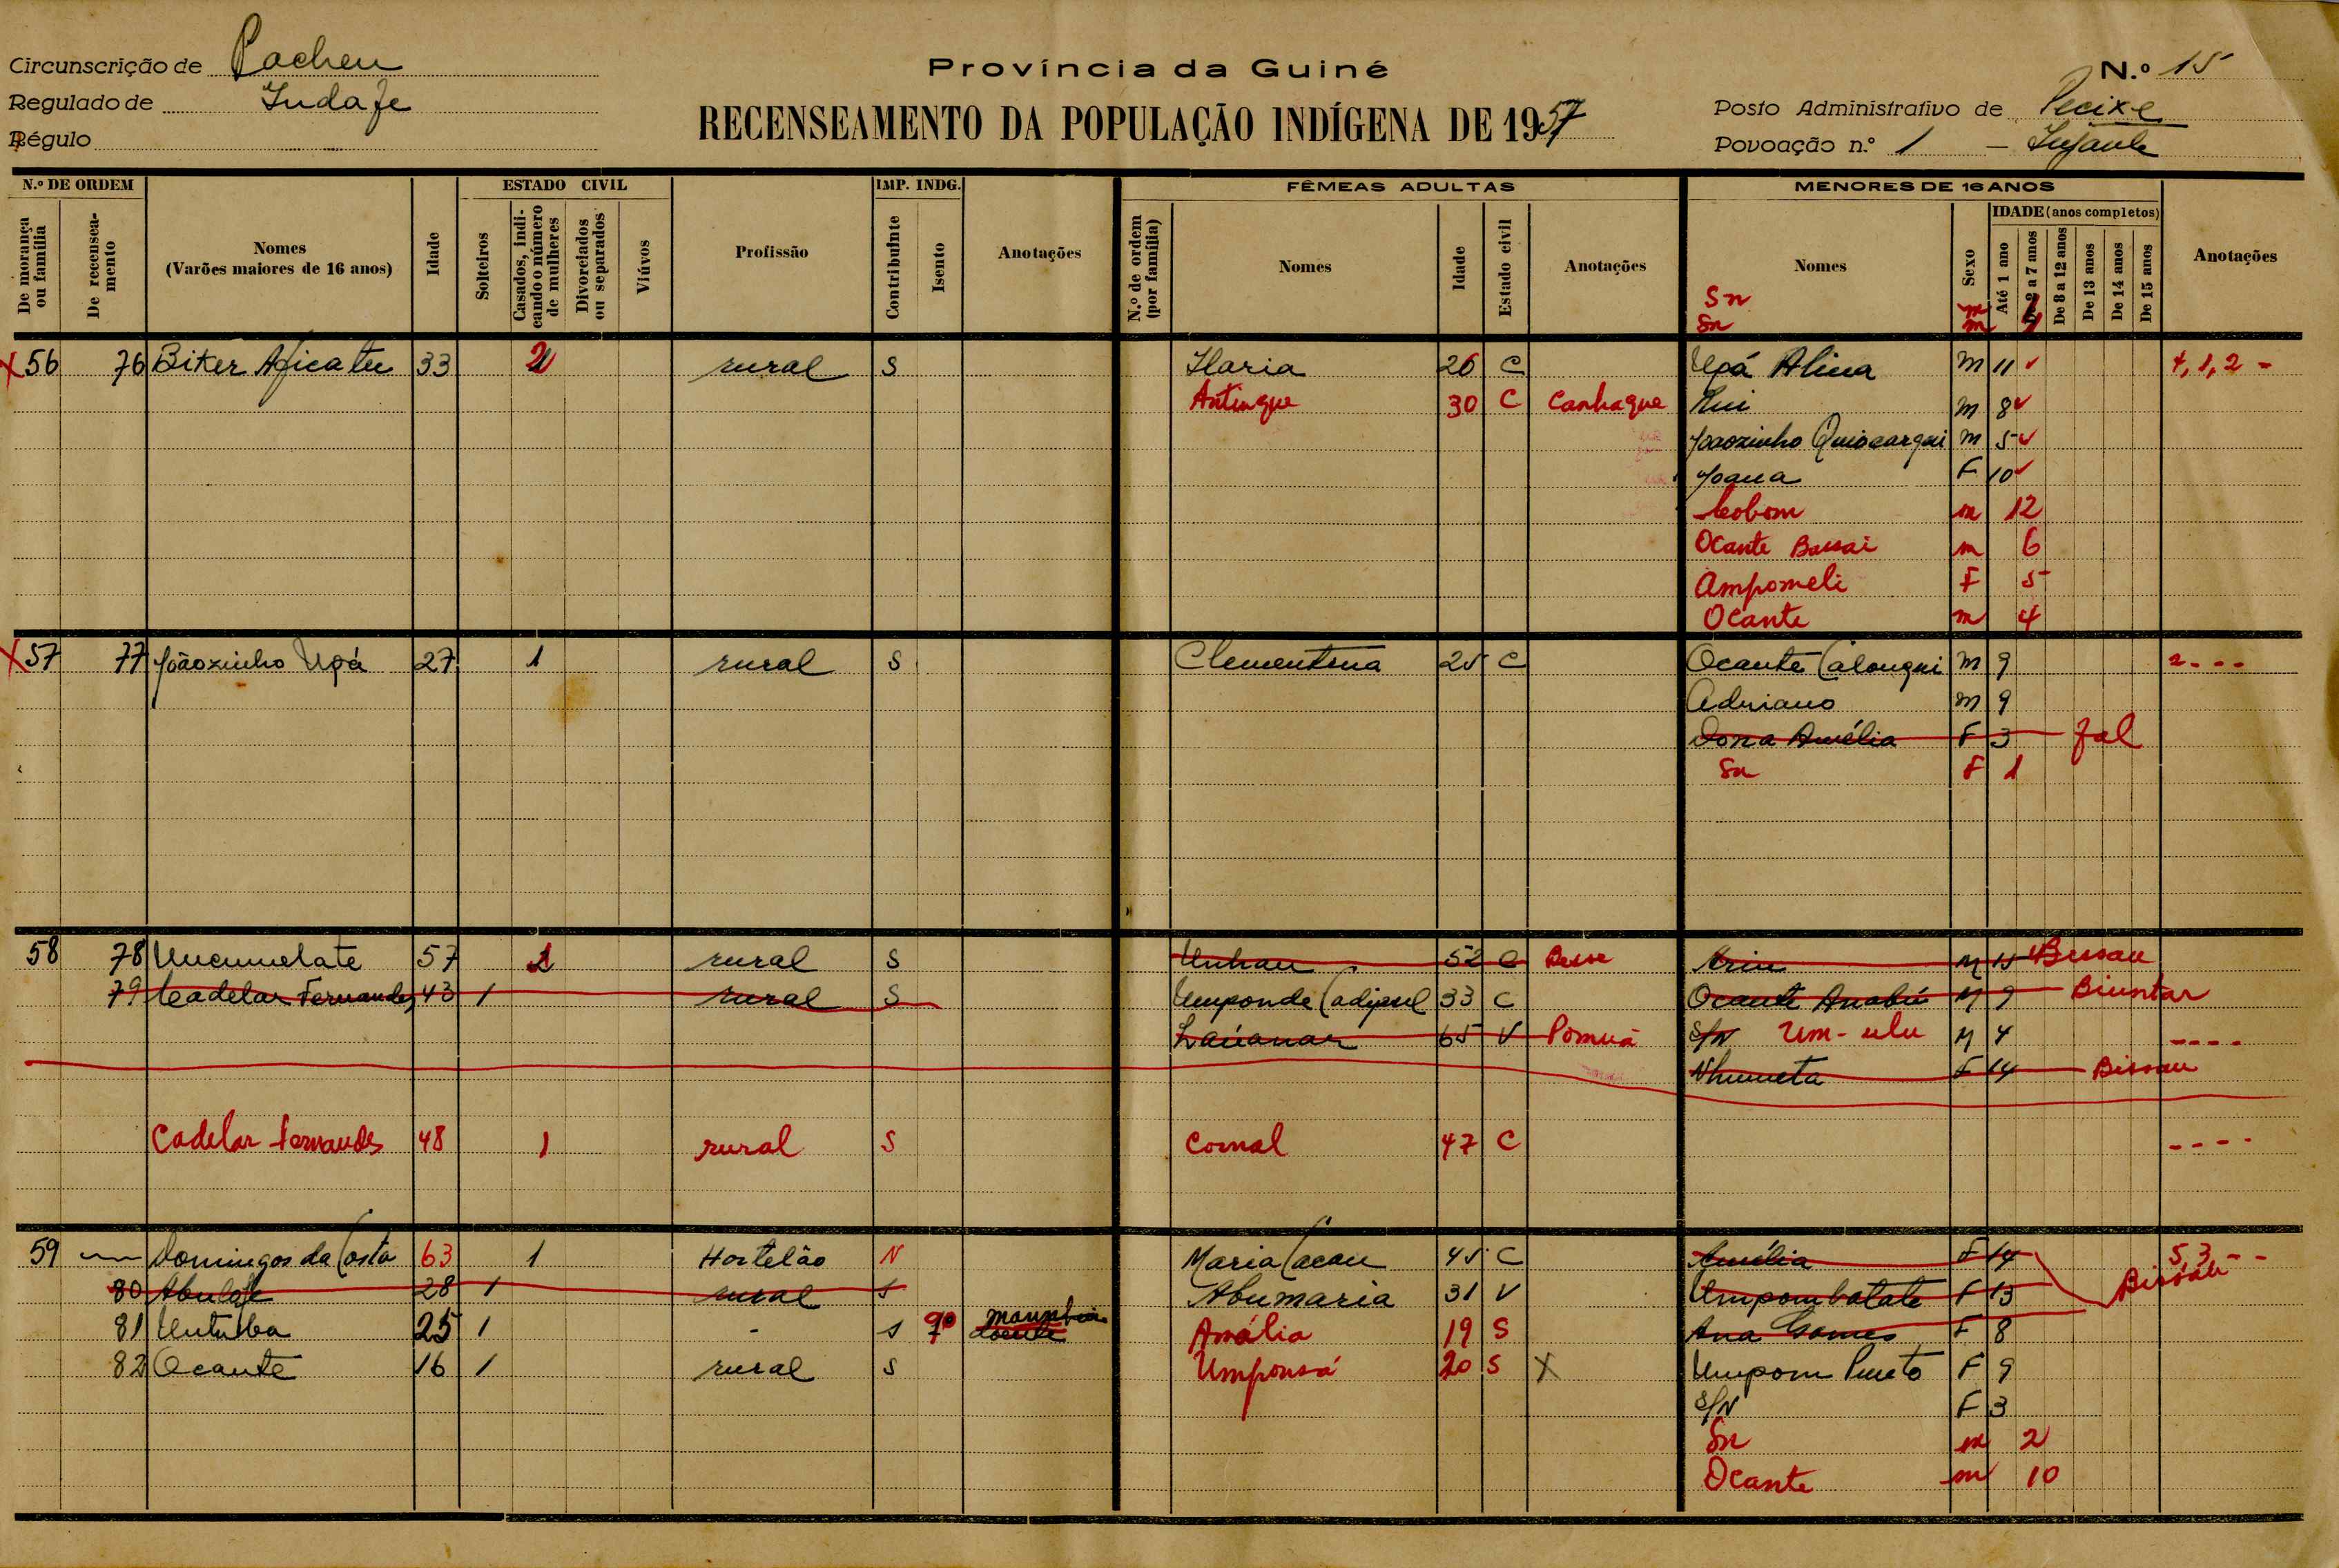 Circunscrição de Cacheu
Regulado de Indafe
Régulo
Província da Guiné
RECENSEAMENTO DA POPULAÇÃO INDÍGENA DE 1957
N.º 15
Posto Administrativo de Pecixe
Povoação n.º 1 – Infante
N.º DE ORDEM
De morança ou família
De recenseamento
Nomes
(Varões maiores de 16 anos)
Idade
ESTADO CIVIL
Solteiros
Casados, indicando o número de mulheres
Divorciados ou separados
Viúvos
Profissão
IMP. INDG.
Contribuinte
Isento
Anotações
FÊMEAS ADULTAS
N.º de ordem (por família)
Nomes
Idade
Estado civil
Anotações
MENORES DE 16 ANOS
Nomes
Sexo
IDADE (anos completos)
Até 1 ano
De 2 a 7 anos
De 8 a 12 anos
De 13 anos
De 14 anos
De 15 anos
Anotações
Sn m
Sn m
56 76 Biker Aficatu 33 2 rural S Ilaria 26 C Upá Alina M 11 4, 1, 2 -
Antinque 30 C Canhaque Rui M 8
Joãozinho Quiocarqui M 5
Joana F 10
Cobom m 12
Ocante Bassai m 6
Ampomeli F 5
Ocante m 4
57 77 Joãozinho Upá 27 1 rural S Clementina 25 C Ocante Calouqui M 9 2 - - -
Adriano M 9
Dona Amélia F 3 fal
Sn F 1
58 78 Uncumelate 57 rural S Unhau 52 C M 15 Bissau
79 Cadelar Fernandes 43 1 rural S Umponde Cadipul 33 C Ocante Anabú M 9 Biuntar
Lauanar 65 V Pomuá S/N Um-ulu M 4 - - - -
Nhumeta F 14 Bissau
Cadelar Fernandes 48 1 rural S Comal 47 C - - - -
59 Domingos da Costa 63 1 Hortelão N Maria Cacau 45 C Amélia F 14 5, 3 - -
80 Abulafe 28 1 rural S Abumaria 31 V Umpombatate F 13 Bissau
81 Untuba 25 1 - S doente Amália 19 S Ana Gomes F 8
82 Ocante 16 1 rural S Umponsá 20 S X Umpom Puto F 9
S/N F 3
Sn m 2
Ocante m 10